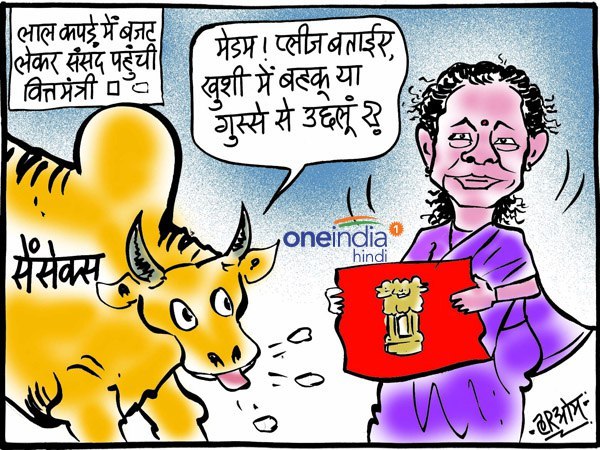 लाल कपड़े में बजट
लेकर संसद पहुंची
वित्तमंत्री
मेडम! प्लीज बताईए,
खुशी में बहकू या
गुस्से से उछलूं ??
सेंसेक्स
oneindia
hindi
हरिओम